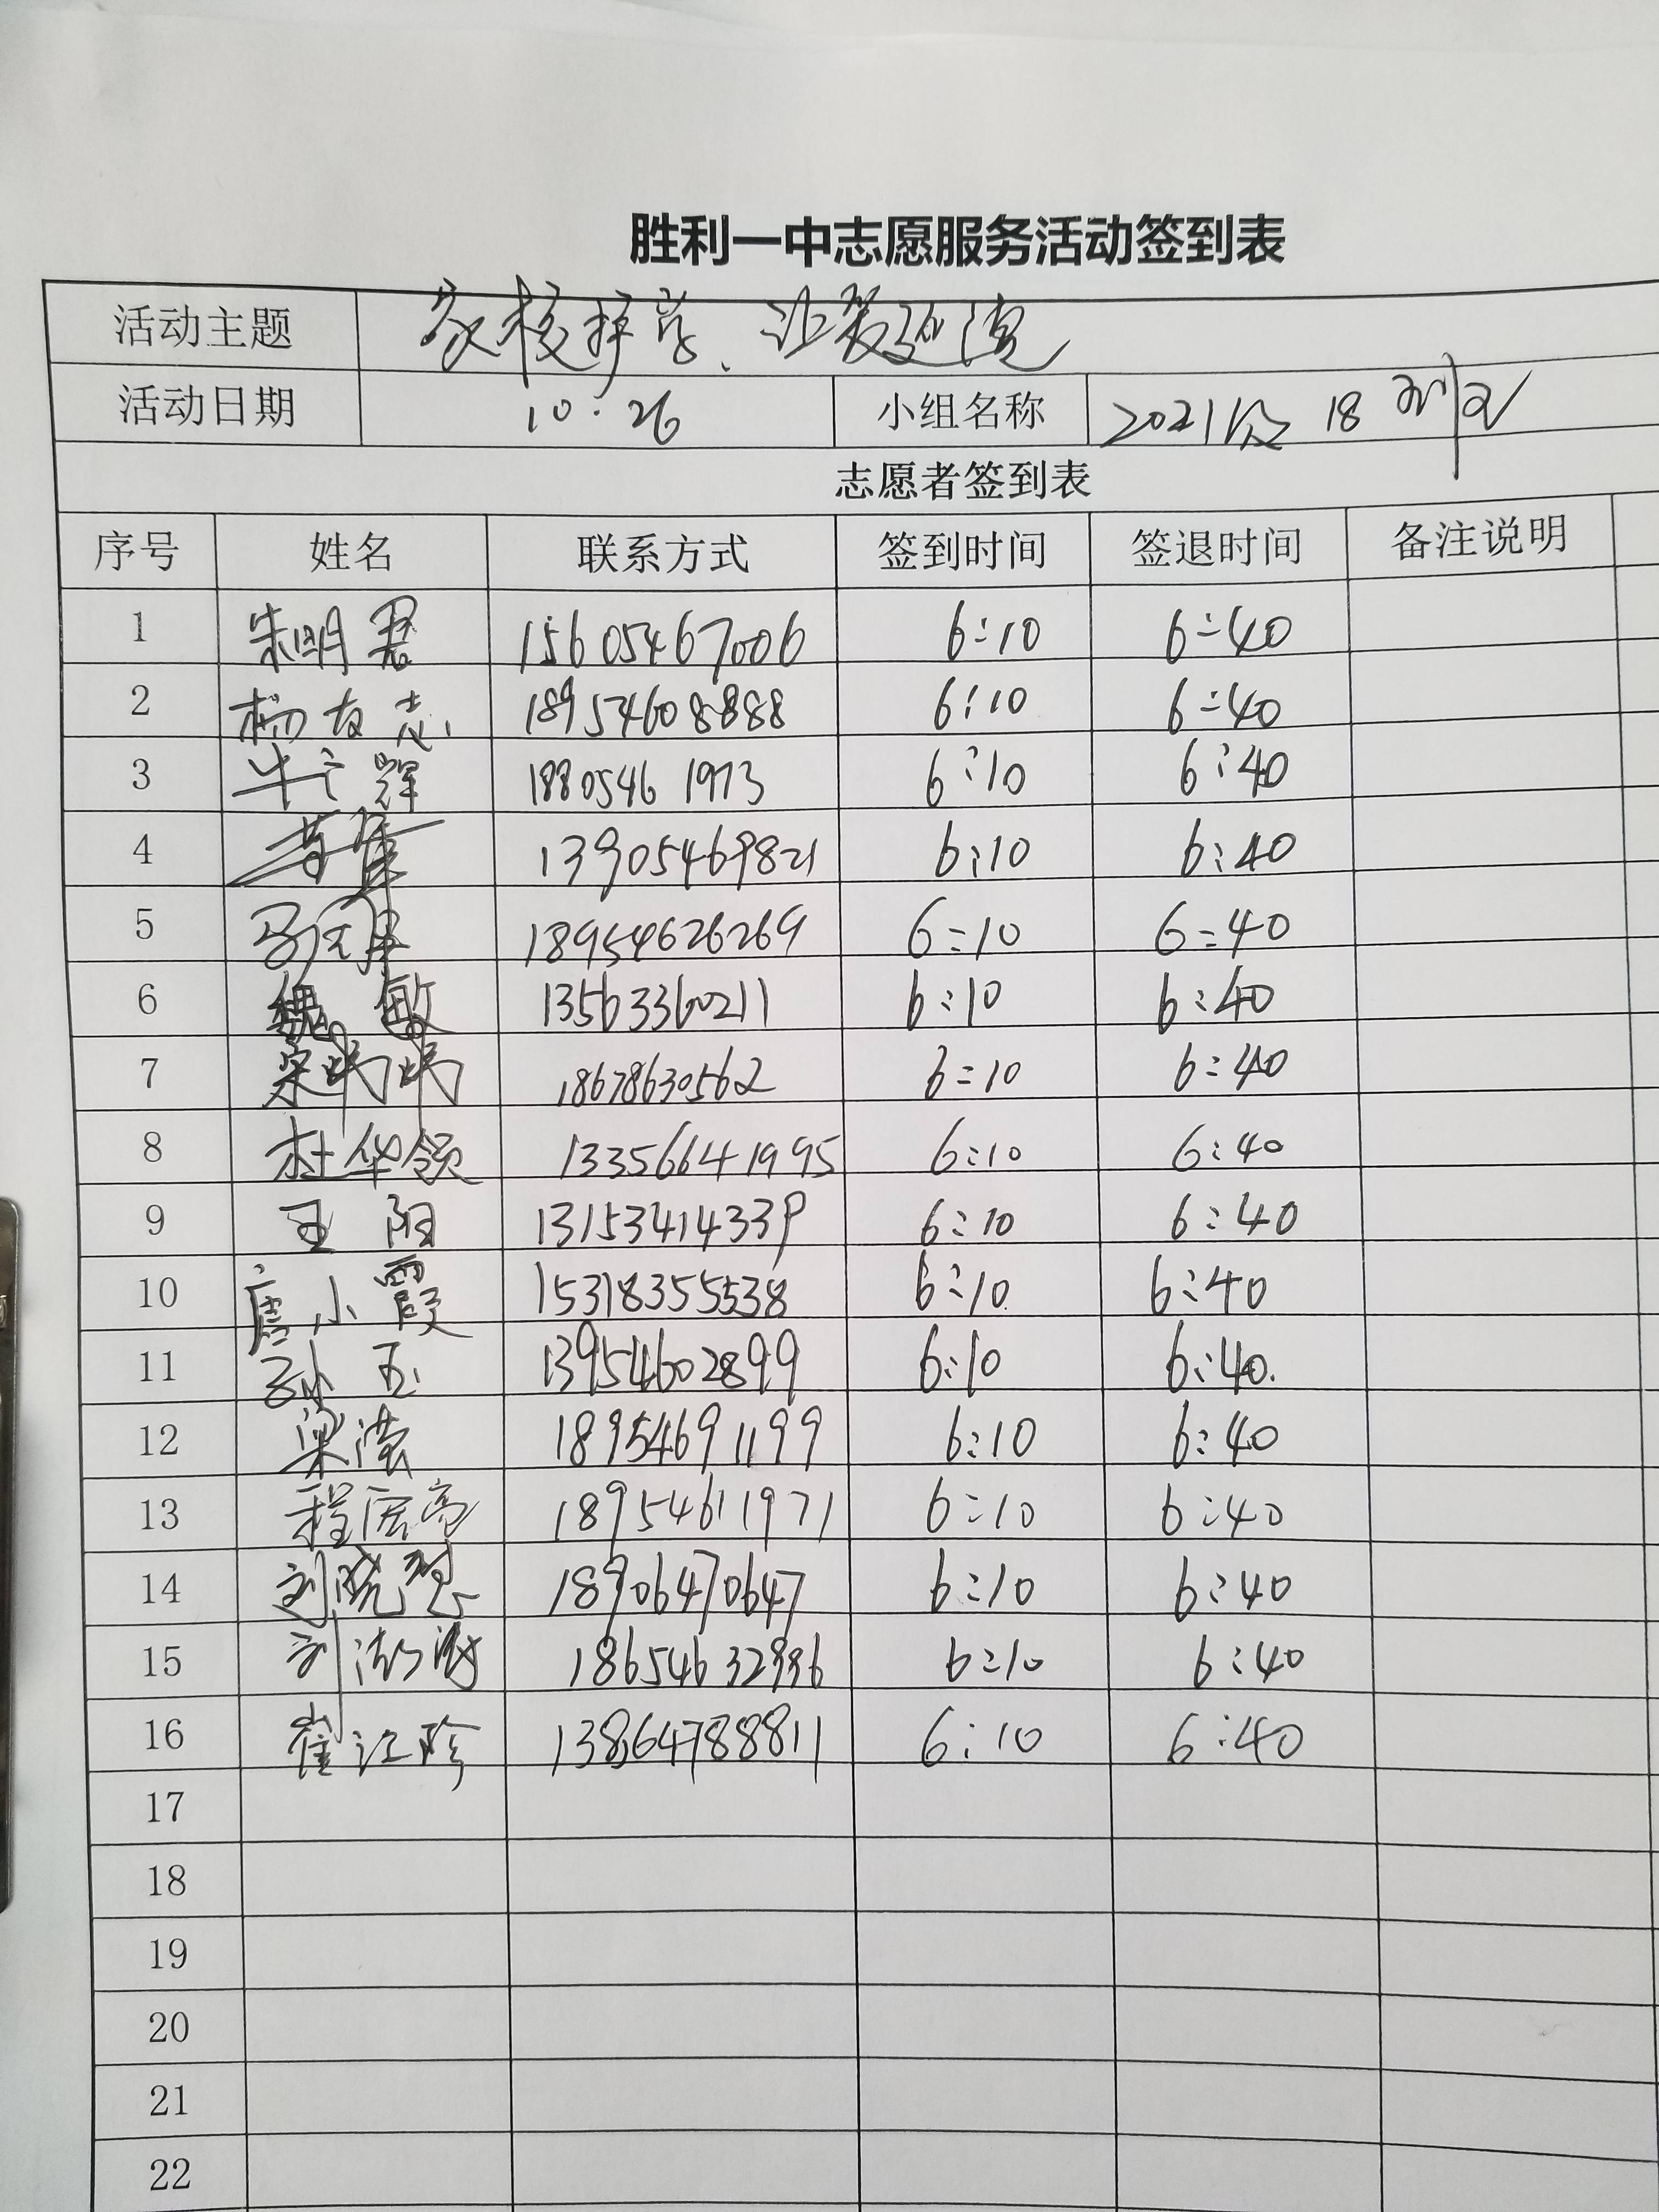 胜利一中志愿服务活动签到表
活动主题 家校护学、让爱延续
活动日期 10.26 小组名称 2021级 18
志愿者签到表
序号 姓名 联系方式 签到时间 签退时间 备注说明
1 朱明君 15605467006 6:10 6:40
2 杨友志 18954608888 6:10 6:40
3 牛广辉 18805461973 6:10 6:40
4 13905469821 6:10 6:40
5 18954626269 6:10 6:40
6 魏敏 13563360211 6:10 6:40
7 宋娜娜 18678630562 6:10 6:40
8 杜华领 13356641995 6:10 6:40
9 王阳 13153414339 6:10 6:40
10 唐小霞 15318355538 6:10 6:40
11 孙玉 13954602899 6:10 6:40
12 梁滢 18954691199 6:10 6:40
13 程宏亮 18954611971 6:10 6:40
14 刘晓慧 18906470647 6:10 6:40
15 刘 6:10 6:40
16 崔江珍 13864788811 6:10 6:40
17
18
19
20
21
22